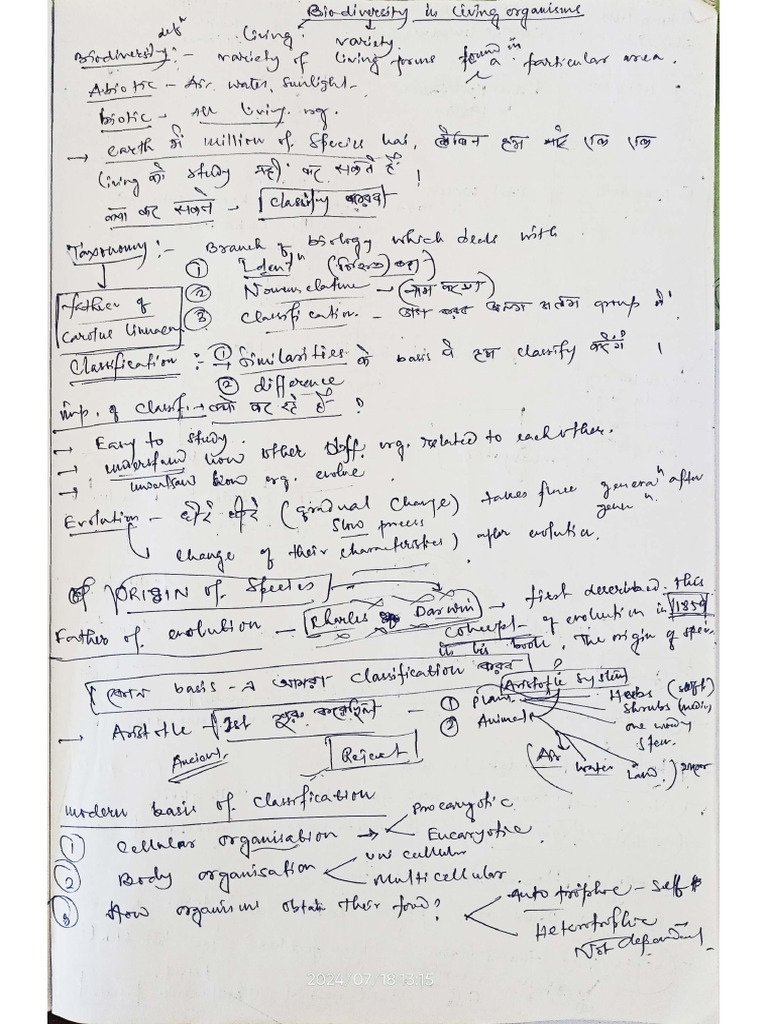 Biodiversity in living organisms
living. variety.
defⁿ
Biodiversity:- variety of living forms found in a particular area.
Abiotic - Air, water, sunlight-
biotic - All living. org.
→ earth में million of species has, लेकिन हम एक एक
living को study नहीं कर सकते हैं !
क्या कर सकते - classify করব
Taxonomy:- Branch of biology which deals with
① Identⁿ
② Nomenclature -
③ classification - अलग अलग group में
father of
Carolus Linnaeu
Classification :- ① → Similarities के basis पे हम classify करेंगे ।
② difference
imp. of classif. → क्यों कर रहे हैं ?
→ Easy to study.
→ understan how other diff. org. related to each other.
→ understan how org. evolve
Evolution - धीरे धीरे (gradual change) takes place generaⁿ after generⁿ.
Slow process
change of their characteristics) after evolution.
ORIGIN of Species
Father of evolution - Charles Darwin → first described this
concept - of evolution in 1859
in his book, The origin of speis
কোন basis - এ আমরা classification করব ?
→ Aristotle - 1st
Ancient.
Reject
Aristotle system
① Plants
② Animals
Herbs
Shrubs
one woody
stem.
(Air water Land)
modern basis of classification
① Cellular organisation → Procaryotic
Eucaryotic
② Body organisation uni cellular
Multicellular
③ How organisms obtain their food? auto trophic - self
Heterotrophic
Not dependent
2024/07/18 13:15